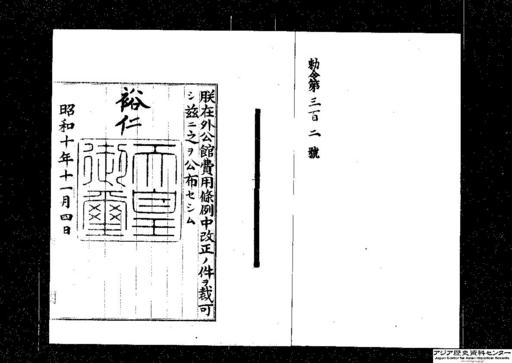 勅令第三百二號
朕在外公館費用條例中改正ノ件ヲ裁可
シ茲ニ之ヲ公布セシム
裕仁
天皇
御璽
昭和十年十一月四日
アジア歴史資料センター
Japan Center for Asian Historical Records